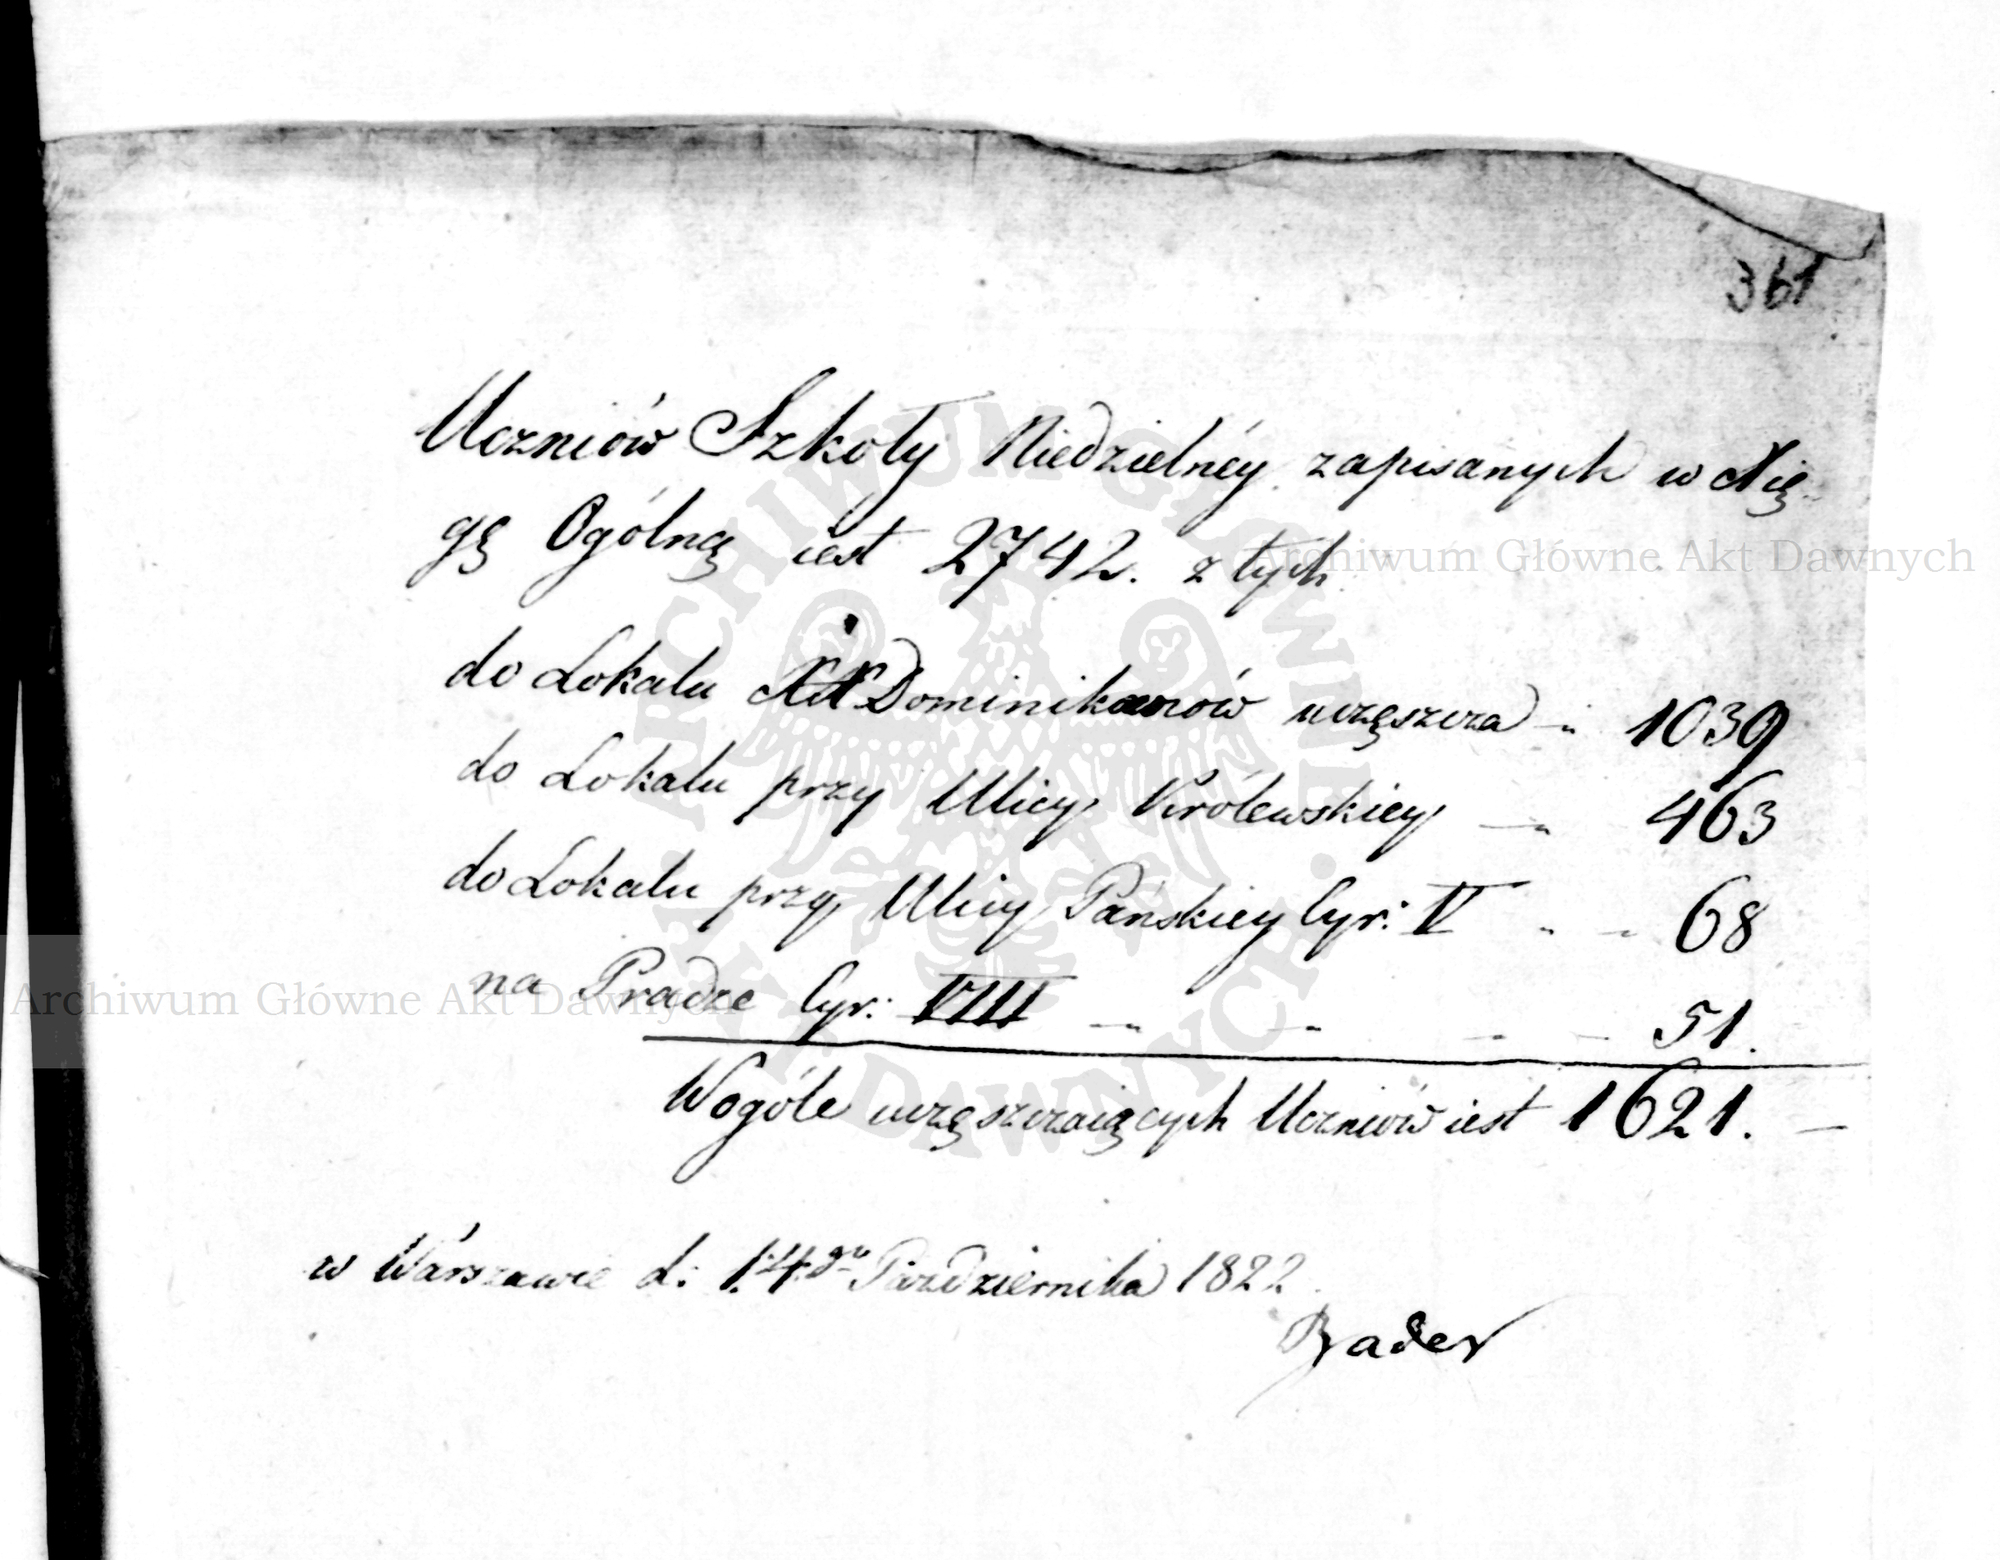 361
Uczniów Szkoły Niedzielnéy zapisanych w Xię-
gę Ogólną iest 2742. z tych
do Lokalu XX Dominikanów uczęszcza - 1039
do Lokalu przy Ulicy Królewskiey - 463
do Lokalu przy Ulicy Pańskiey Cyr: V - - 68
na Pradze Cyr: VIII - - - - 51.
Wogóle uczęszczaiących Uczniów iest 1621. -
w Warszawie d: 14go Pazdziernika 1822.
Bader
Archiwum Główne Akt Dawnych
Archiwum Główne Akt Dawnych
ARCHIWUM GŁÓWNE AKT DAWNYCH